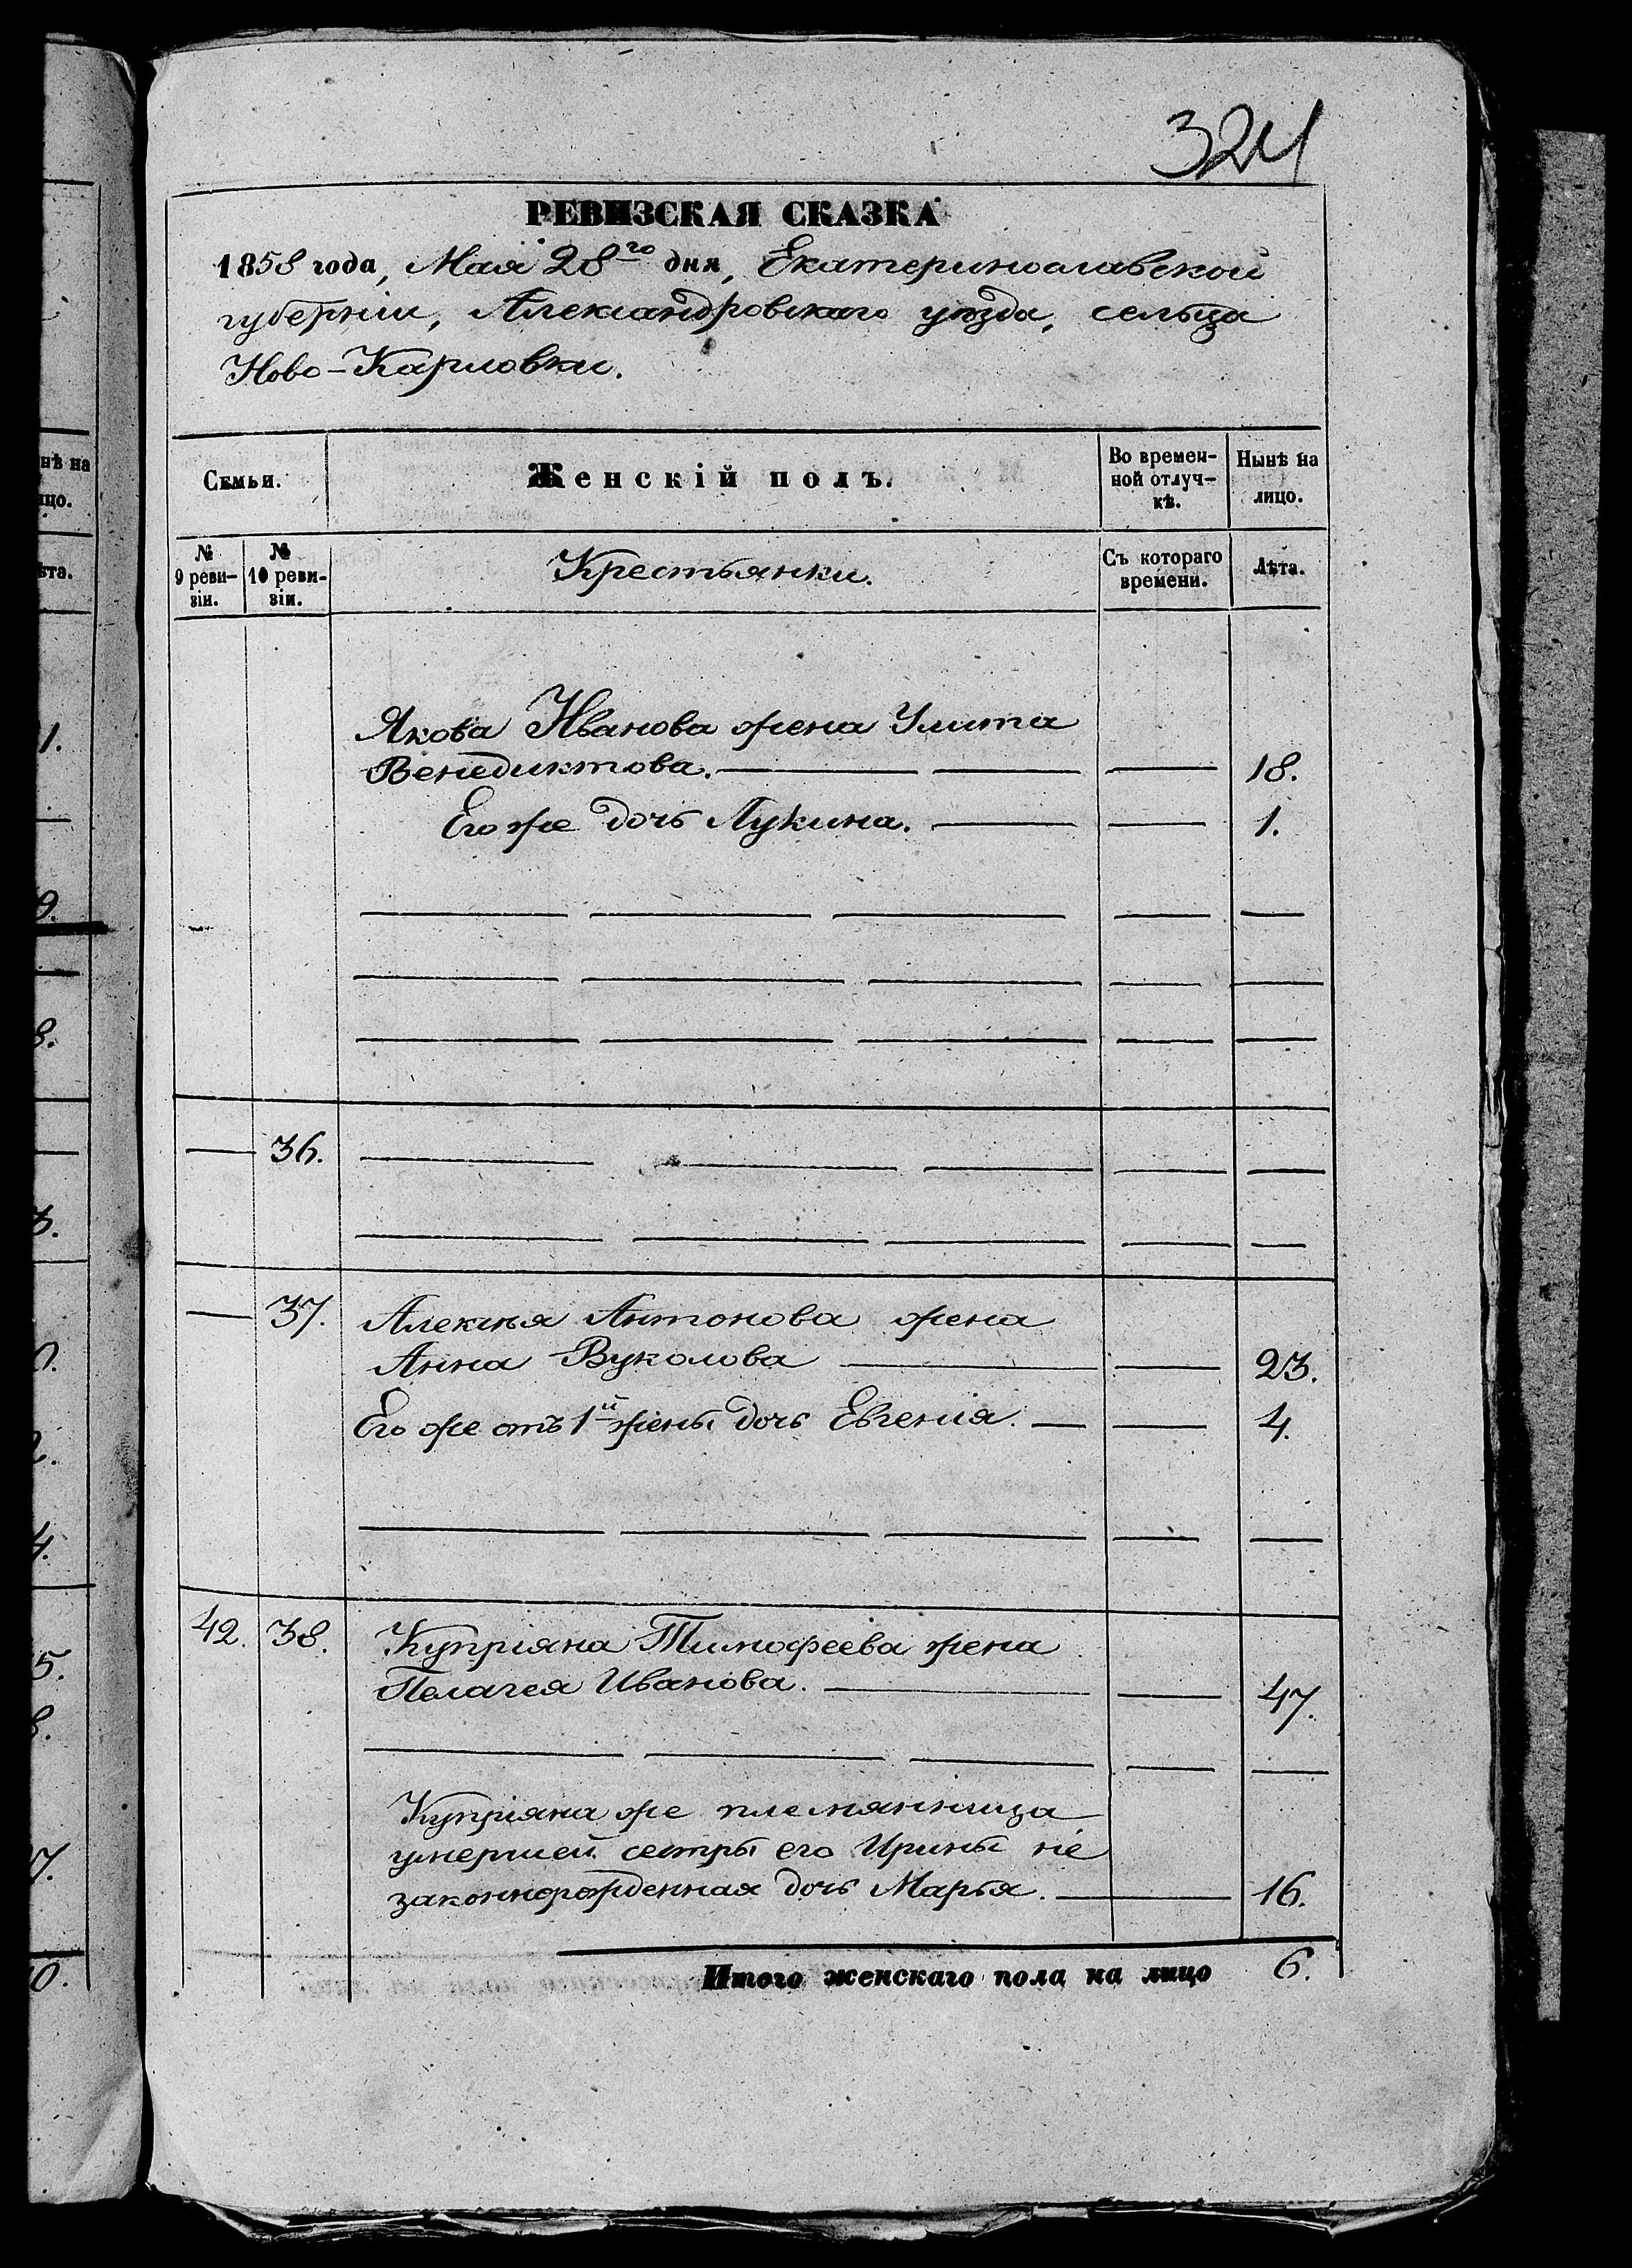 324
РЕВИЗСКАЯ СКАЗКА
1858 года, Мая 28го дня, Екатеринославской
губерніи, Александровскаго уѣзда, сельца
Ново-Карловки.
Семьи.
Женскій полъ.
Во времен-
ной отлуч-
кѣ.
Нынѣ на
лицо.
№
9 реви-
зіи.
№
10 реви-
зіи.
Крестьянки.
Съ котораго
времени.
Лѣта.
Якова Иванова жена Улита
Венедиктова. 18.
Его же дочь Лукина. 1.
36.
37. Алексѣя Антонова жена
Анна Вуколова 23.
Его же отъ 1й жены дочь Евгенія. 4.
42. 38. Купріяна Тимофеева жена
Пелагея Иванова. 47.
Купріяна же племянница
умершей сестры его Ирины не
законнорожденная дочь Марья. 16.
Итого женскаго пола на лицо 6.
нѣ на
ицо.
ѣта.
1.
9.
8.
3.
2.
4.
5.
8.
7.
0.